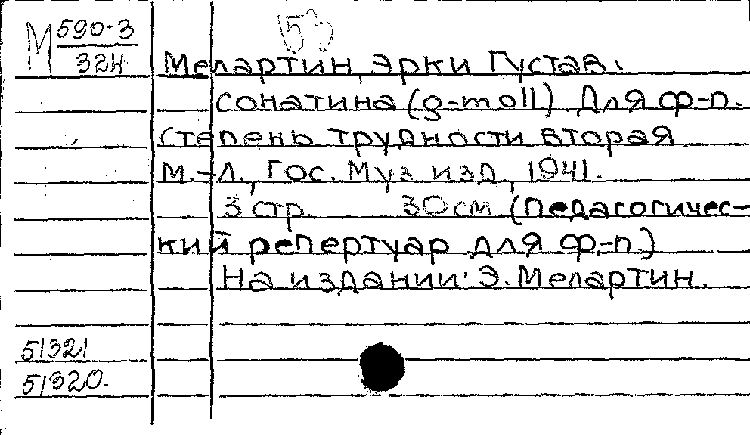 М 590-3
324
53
Мелартин, Эрки Густав.
Сонатина (g-moll) Для ф-п.
Степень трудности вторая
М.-Л., Гос. Муз. изд., 1941.
3 стр. 30 см (Педагогичес-
кий репертуар для ф.-п.)
На издании: Э. Мелартин.
51321
51320.